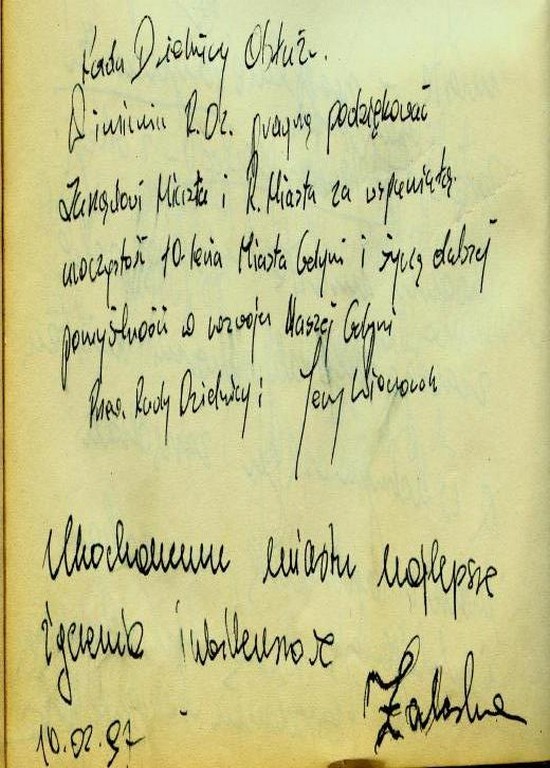 Rada Dzielnicy Obłuże.
W imieniu R.Dz. pragnę podziękować
Zarządowi Miasta i R. Miasta za wspaniałą
uroczystość 10-lecia Miasta Gdyni i życzę dalszej
pomyślności w rozwoju Naszej Gdyni
Przew. Rady Dzielnicy: Jerzy
Ukochanemu miastu najlepsze
życzenia jubileuszowe
10.02.97